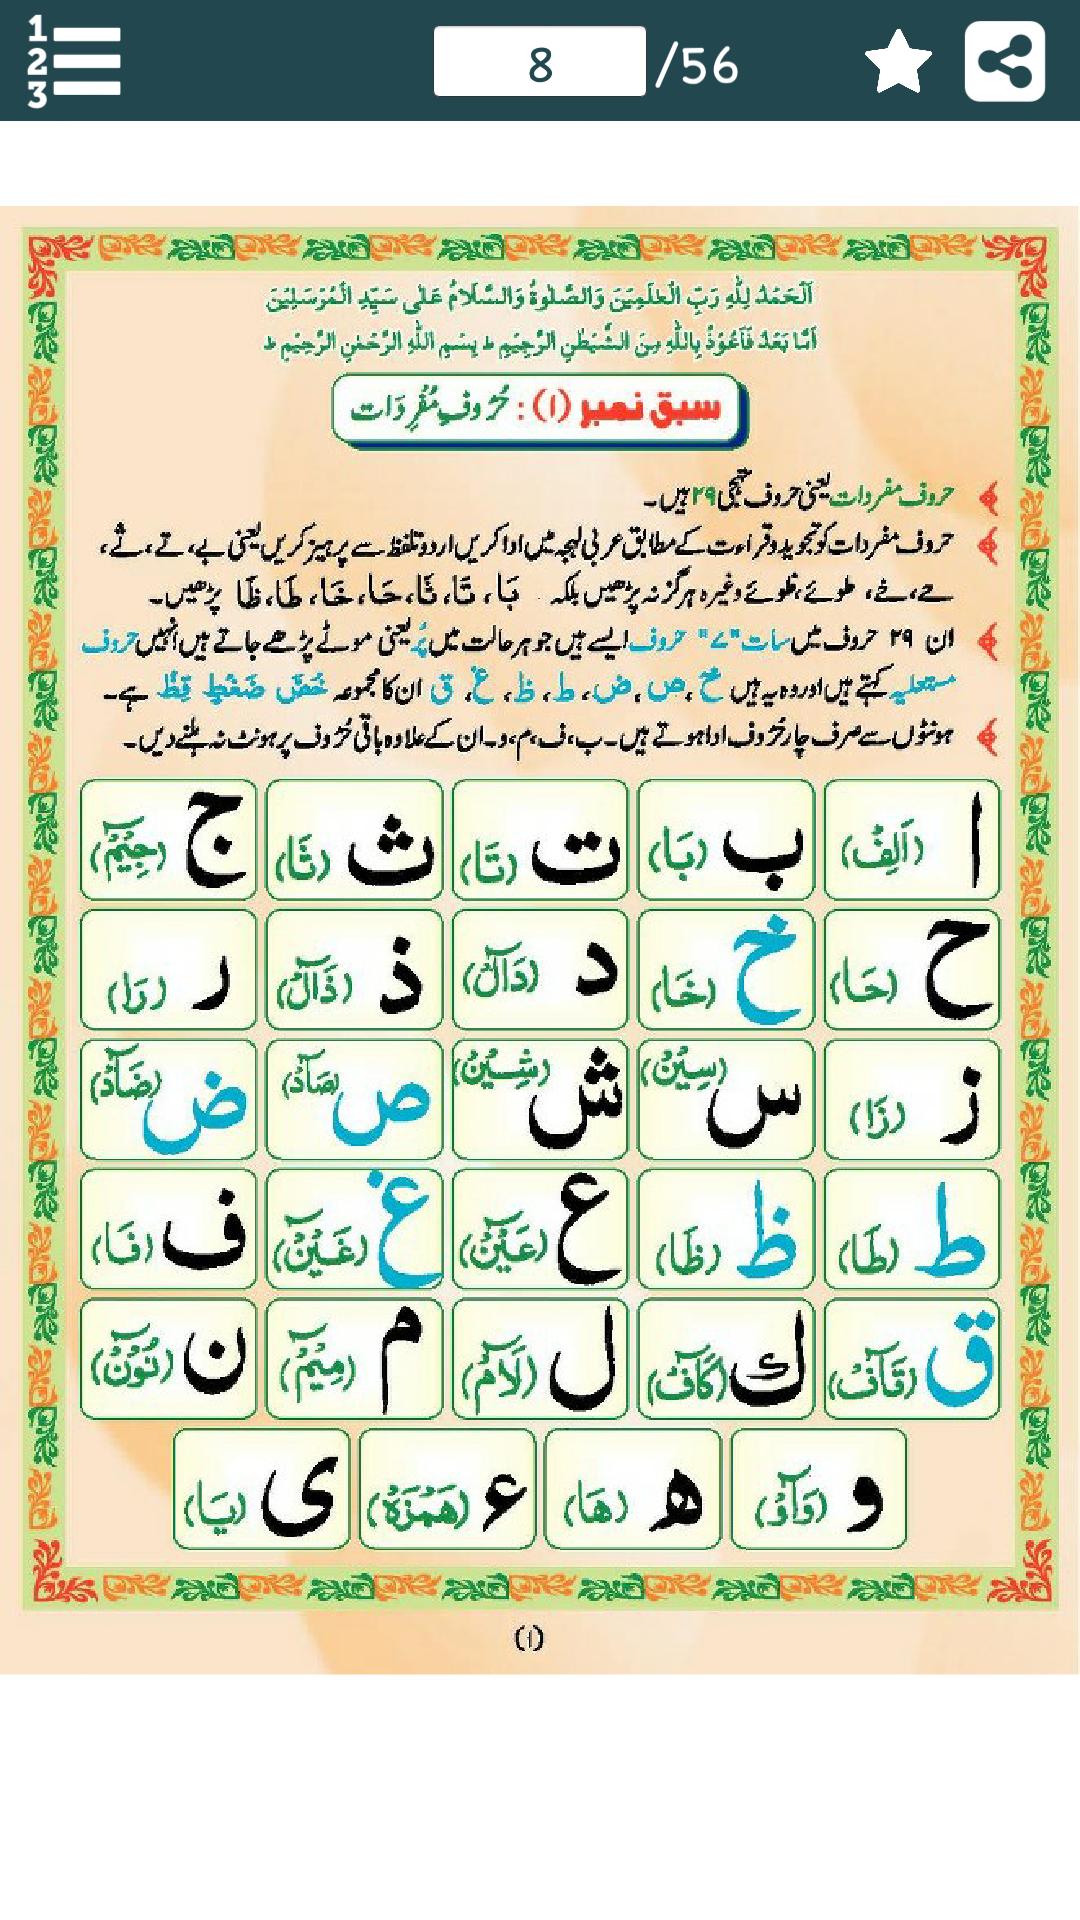 1
2
3
8 /56
اَلْحَمْدُ لِلّٰهِ رَبِّ الْعٰلَمِیْنَ وَالصَّلٰوةُ وَالسَّلَامُ عَلٰی سَیِّدِ الْمُرْسَلِیْنَ
اَمَّا بَعْدُ فَاَعُوْذُ بِاللّٰهِ مِنَ الشَّیْطٰنِ الرَّجِیْمِ ط بِسْمِ اللّٰهِ الرَّحْمٰنِ الرَّحِیْمِ ط
سبق نمبر (۱): حُرُوفِ مُفْرِدَات
حروف مفردات یعنی حروف تہجی ۲۹ ہیں۔
حروف مفردات کو تجوید و قراءت کے مطابق عربی لہجہ میں ادا کریں اردو تلفظ سے پرہیز کریں یعنی بے، تے، ثے،
حے، خے، طوئے، ظوئے وغیرہ ہرگز نہ پڑھیں بلکہ بَا، تَا، ثَا، حَا، خَا، طَا، ظَا پڑھیں۔
ان ۲۹ حروف میں سات "۷" حروف ایسے ہیں جو ہر حالت میں پُر یعنی موٹے پڑھے جاتے ہیں انہیں حروف
مستعلیہ کہتے ہیں اور وہ یہ ہیں خ، ص، ض، ط، ظ، غ، ق ان کا مجموعہ خُصَّ ضَغْطٍ قِظْ ہے۔
ہونٹوں سے صرف چار حُرُوف ادا ہوتے ہیں۔ ب، ف، م، و۔ ان کے علاوہ باقی حُرُوف پر ہونٹ نہ ہلنے دیں۔
ا (اَلِفْ) ب (بَا) ت (تَا) ث (ثَا) ج (جِیْمْ)
ح (حَا) خ (خَا) د (دَالْ) ذ (ذَالْ) ر (رَا)
ز (زَا) س (سِیْنْ) ش (شِیْنْ) ص (صَادْ) ض (ضَادْ)
ط (طَا) ظ (ظَا) ع (عَیْنْ) غ (غَیْنْ) ف (فَا)
ق (قَافْ) ك (كَافْ) ل (لَامْ) م (مِیْمْ) ن (نُوْنْ)
و (وَاوْ) ھ (هَا) ء (هَمْزَهْ) ی (یَا)
(۱)